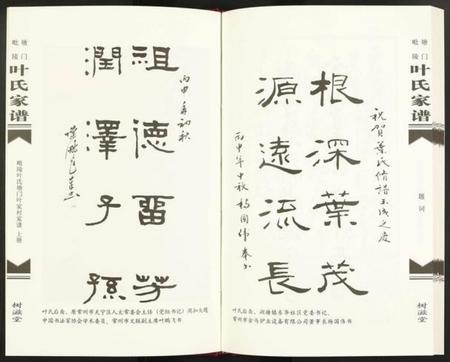 毗陵
塘门
叶氏家谱
毗陵叶氏塘门叶家村家谱 上册
树滋堂
丙申年初秋
祖德留芳
潤澤子孫
叶氏后裔、原常州市天宁区人大常委会主任(党组书记)周如大题
中国书法家协会学术委员、常州市文联副主席叶鹏飞书
祝賀葉氏修譜玉成之慶
根深葉茂
源遠流長
丙申年中秋 楊國偉 奉書
叶氏后裔、湖塘镇东华社区党委书记、
常州市金马炉业设备有限公司董事长杨国伟书
毗陵
塘门
叶氏家谱
题词
树滋堂